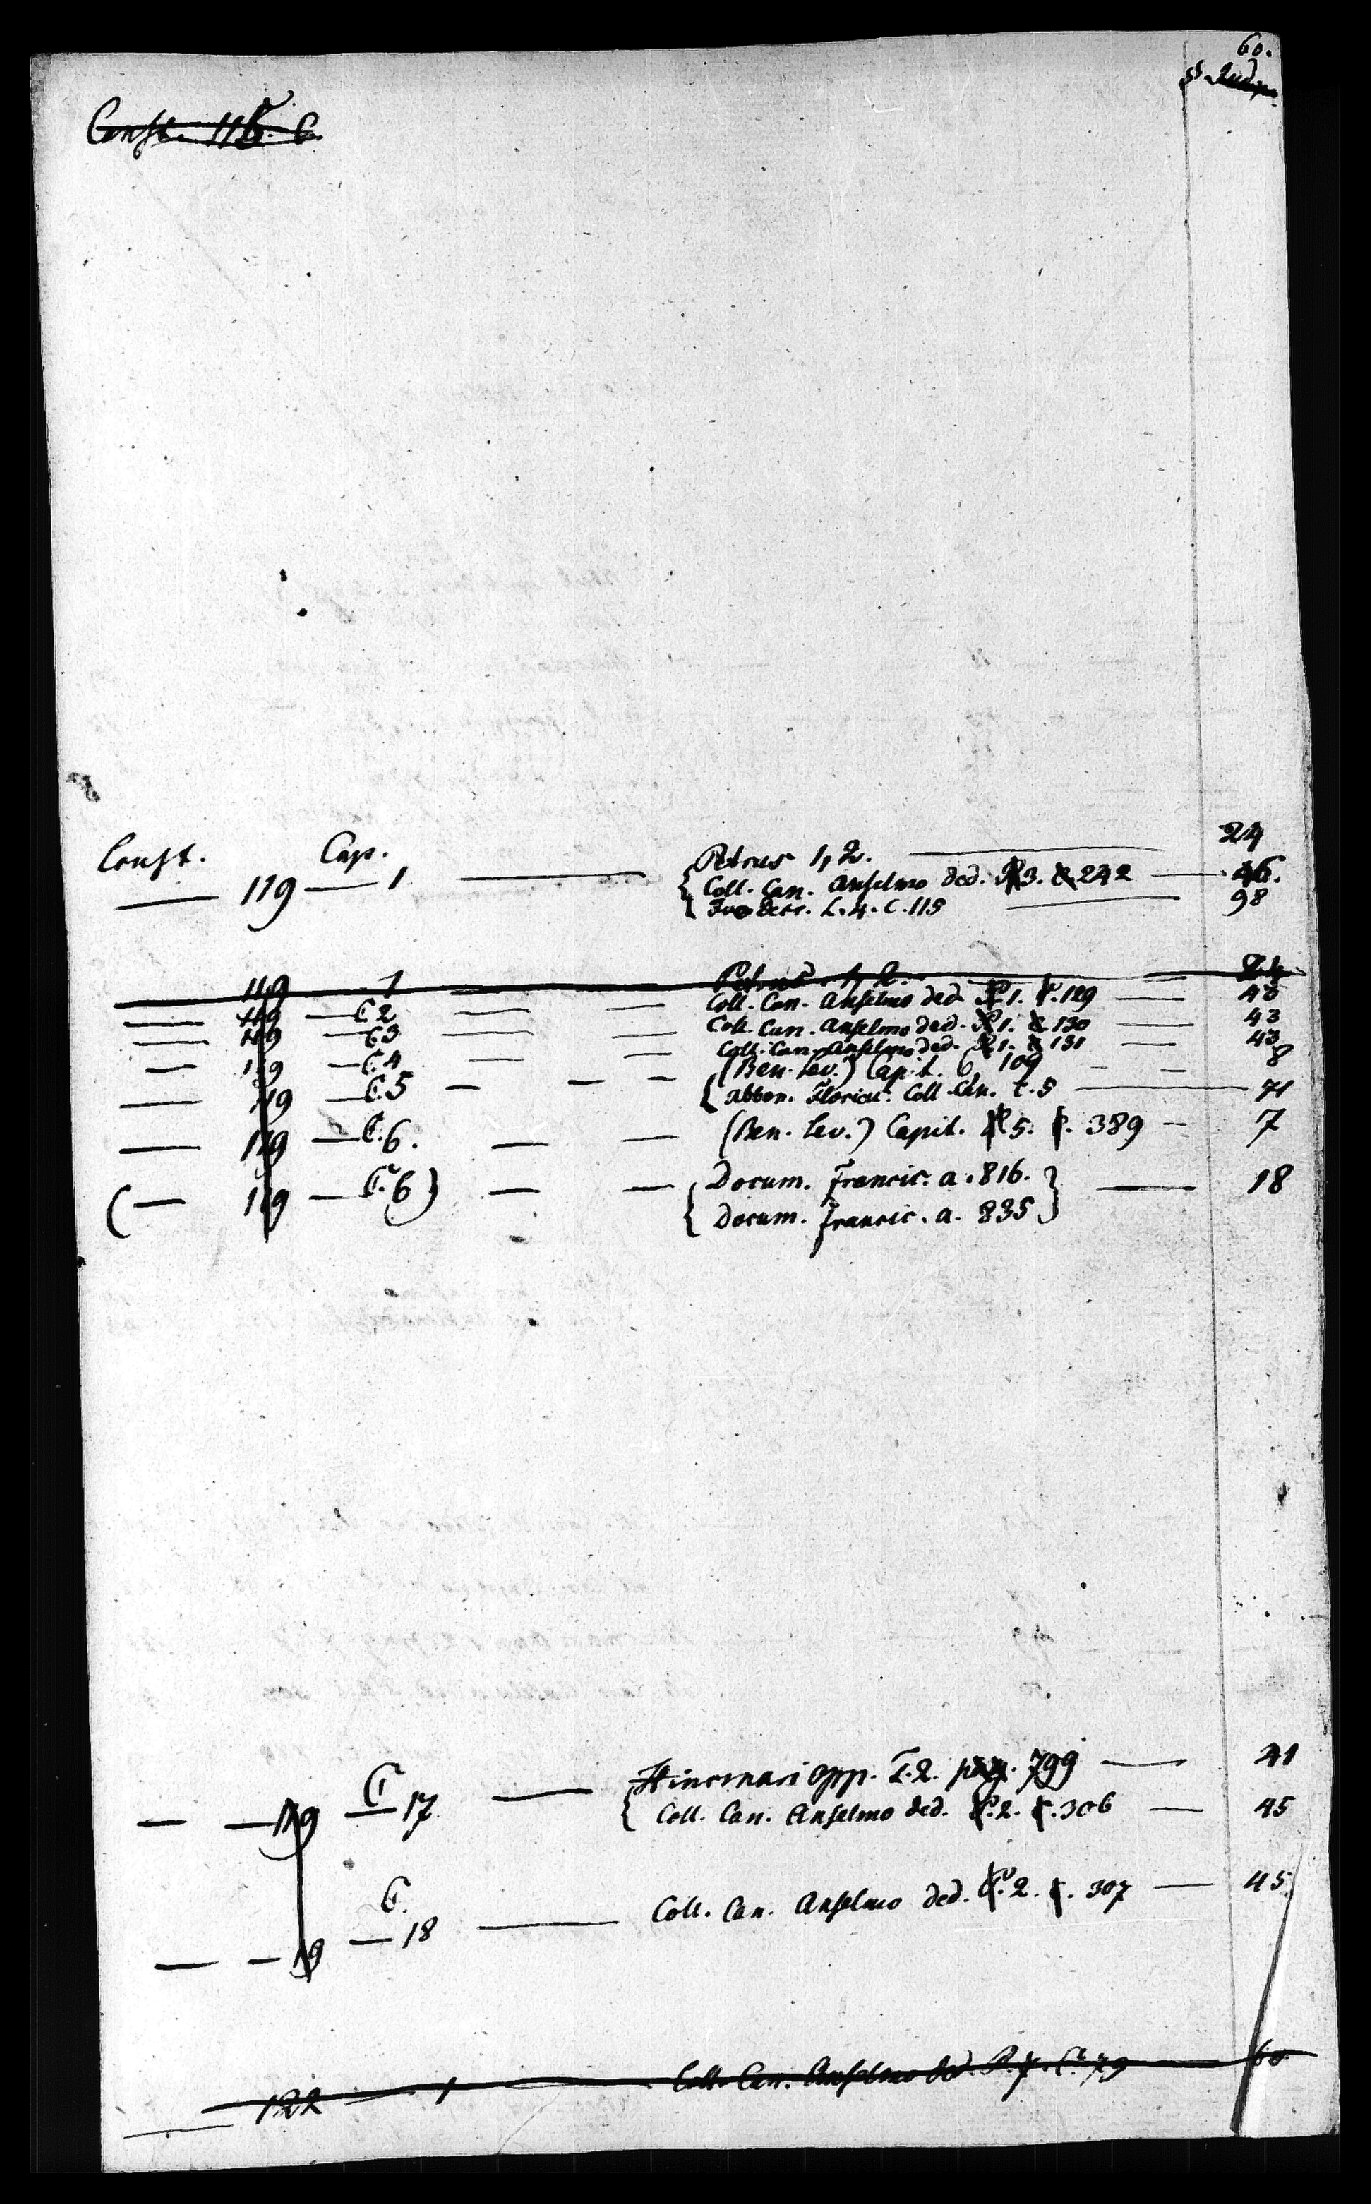 60.
Const. 115. C
Const. Cap.
— 119 — 1 — Petrus 1, 2. — 24
Coll. Can. Anselmo ded. P. 3. C. 242 — 46.
Ivo Decr. L. 4. C. 115 — 98
119 1 — Petrus. 1, 2. — 24
— 119 — C 2 — — Coll. Can. Anselmo ded. P. 1. C. 129 — 43
— 119 — C 3 — — Coll. Can. Anselmo ded. P. 1. C. 130 — 43
— 119 — C. 4 — — Coll. Can. Anselmo ded. P. 1. C. 131 — 43
— 119 — C. 5 — — — (Ben. Lev.) Capit. 6, 109 — — 8
Abbon. Floriac. Coll. Can. C. 5 — 71
— 119 — C. 6. — — (Ben. Lev.) Capit. L. 5. C. 389 — 7
(— 119 — C. 6) — — Docum. Francic. a. 816. — 18
Docum. Francic. a. 835
— — 119 — C 17 — Hincmari Opp. T. 2. pag. 799 — 41
Coll. Can. Anselmo ded. P. 2. C. 306 — 45
— — 119 — C. 18 — Coll. Can. Anselmo ded. P. 2. C. 307 — 45.
— 122 — 1 — Coll. Can. Anselmo ded. P. 7. C. 79 — 60